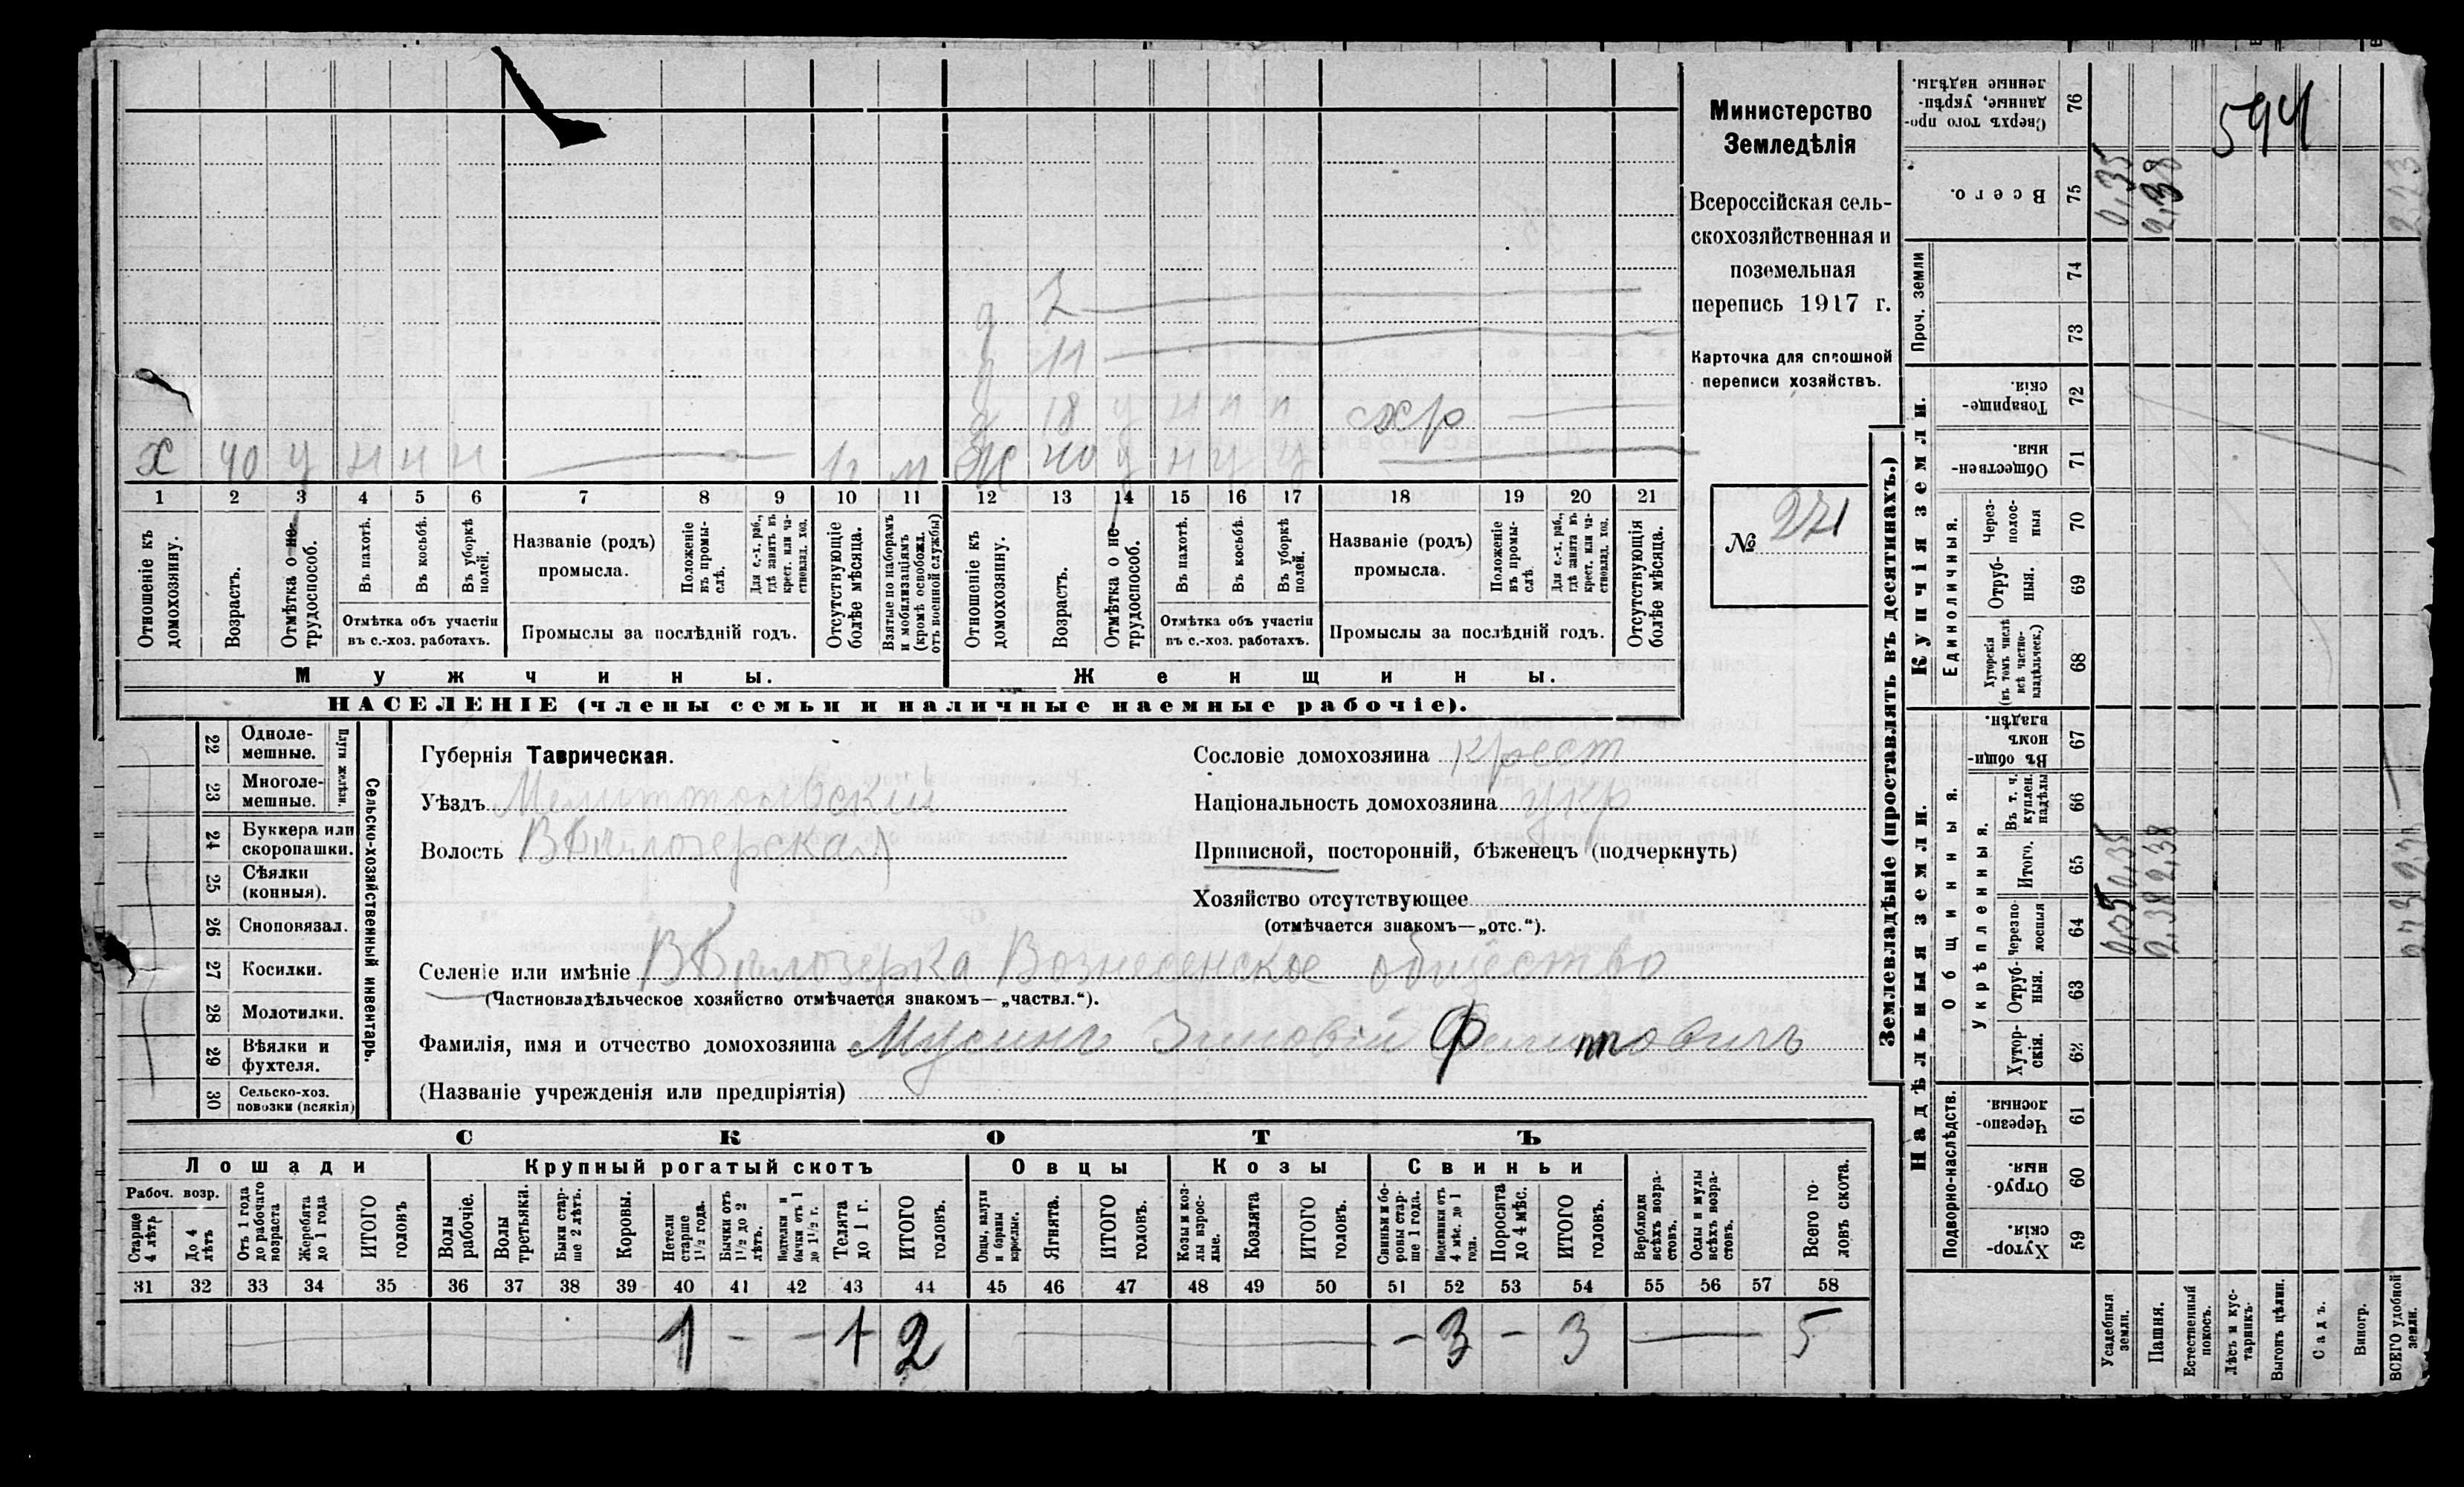 Министерство
Земледѣлія
Всероссійская сель-
скохозяйственная и
поземельная
перепись 1917 г.
Карточка для сплошной
переписи хозяйствъ.
№ 271
594
д 7
д 11
д 18 у н п п схр
Х 40 у н н н 1г м Ж 40 у н у у
1 2 3 4 5 6 7 8 9 10 11 12 13 14 15 16 17 18 19 20 21
Отношеніе къ домохозяину.
Возрастъ.
Отмѣтка о не-трудоспособ.
Въ пахотѣ.
Въ косьбѣ.
Въ уборкѣ полей.
Отмѣтка объ участіи въ с.-хоз. работахъ.
Названіе (родъ) промысла.
Положеніе въ промы-слѣ.
Для с.-х. раб., гдѣ занятъ въ крест. или ча-стновлад. хоз.
Промыслы за послѣдній годъ.
Отсутствующіе болѣе мѣсяца.
Взятые по наборамъ и мобилизаціямъ (кромѣ освобожд. отъ военной службы)
Отношеніе къ домохозяину.
Возрастъ.
Отмѣтка о не-трудоспособ.
Въ пахотѣ.
Въ косьбѣ.
Въ уборкѣ полей.
Отмѣтка объ участіи въ с.-хоз. работахъ.
Названіе (родъ) промысла.
Положеніе въ промы-слѣ.
Для с.-х. раб., гдѣ занята въ крест. или ча-стновлад. хоз.
Промыслы за послѣдній годъ.
Отсутствующія болѣе мѣсяца.
Мужчины. Женщины.
НАСЕЛЕНІЕ (члены семьи и наличные наемные рабочіе).
22 Одноле-мешные.
23 Многоле-мешные.
Плуги желѣзн.
24 Буккера или скоропашки.
25 Сѣялки (конныя).
26 Сноповязал.
27 Косилки.
28 Молотилки.
29 Вѣялки и фухтеля.
30 Сельско-хоз. повозки (всякія)
Сельско-хозяйственный инвентарь.
Губернія Таврическая.
Уѣздъ Мелитопольскій
Волость ВБѣлозерская
Сословіе домохозяина крест
Національность домохозяина укр
Приписной, посторонній, бѣженецъ (подчеркнуть)
Хозяйство отсутствующее
(отмѣчается знакомъ—„отс.“).
Селеніе или имѣніе ВБѣлозерка Вознесенское общество
(Частновладѣльческое хозяйство отмѣчается знакомъ—„частвл.“).
Фамилія, имя и отчество домохозяина Мусинъ Зиновій Филиповичъ
(Названіе учрежденія или предпріятія)
СКОТЪ
Лошади Крупный рогатый скотъ Овцы Козы Свиньи
Рабоч. возр.
Старше 4 лѣтъ
До 4 лѣтъ
Отъ 1 года до рабочаго возраста
Жеребята до 1 года
ИТОГО головъ
Волы рабочіе.
Волы третьяки.
Быки стар-ше 2 лѣтъ.
Коровы.
Нетели старше 1½ года.
Бычки отъ 1½ до 2 лѣтъ.
Подтелки и бычки отъ 1 до 1½ г.
Телята до 1 г.
ИТОГО головъ.
Овцы, валухи и бараны взрослые.
Ягнята.
ИТОГО головъ.
Козы и коз-лы взрос-лые.
Козлята
ИТОГО головъ.
Свиньи и бо-ровы стар-ше 1 года.
Подсвинки отъ 4 мѣс. до 1 года.
Поросята до 4 мѣс.
ИТОГО головъ.
Верблюды всѣхъ возра-стовъ.
Ослы и мулы всѣхъ возра-стовъ.
Всего го-ловъ скота.
31 32 33 34 35 36 37 38 39 40 41 42 43 44 45 46 47 48 49 50 51 52 53 54 55 56 57 58
1 - - 1 2 - 3 - 3 5
Землевладѣніе (проставлять въ десятинахъ.)
Надѣльныя земли. Купчія земли.
Подворно-наслѣдств.
Общинныя.
Укрѣпленныя.
Единоличныя.
Проч. земли
Хутор-скія. 59
Отруб-ныя. 60
Черезпо-лосныя. 61
Хутор-скія. 62
Отруб-ныя. 63
Черезпо-лосныя 64
Итого. 65
Въ т. ч. куплен. надѣлы 66
Въ общи-номъ владѣн. 67
Хуторскія (въ томъ числѣ всѣ частно-владѣльческ.) 68
Отруб-ныя. 69
Через-полос-ныя 70
Обществен-ныя 71
Товарище-скія. 72
73
74
Всего. 75
Сверхъ того про-данные, укрѣп-ленные надѣлы. 76
Усадебныя земли. 0,35 0,35 0,35
Пашня. 2,38 2,38 2,38
Естественный покосъ.
Лѣсъ и кус-тарникъ.
Выгонъ цѣлин.
Садъ.
Виногр.
ВСЕГО удобной земли. 2,73 2,73 2,73